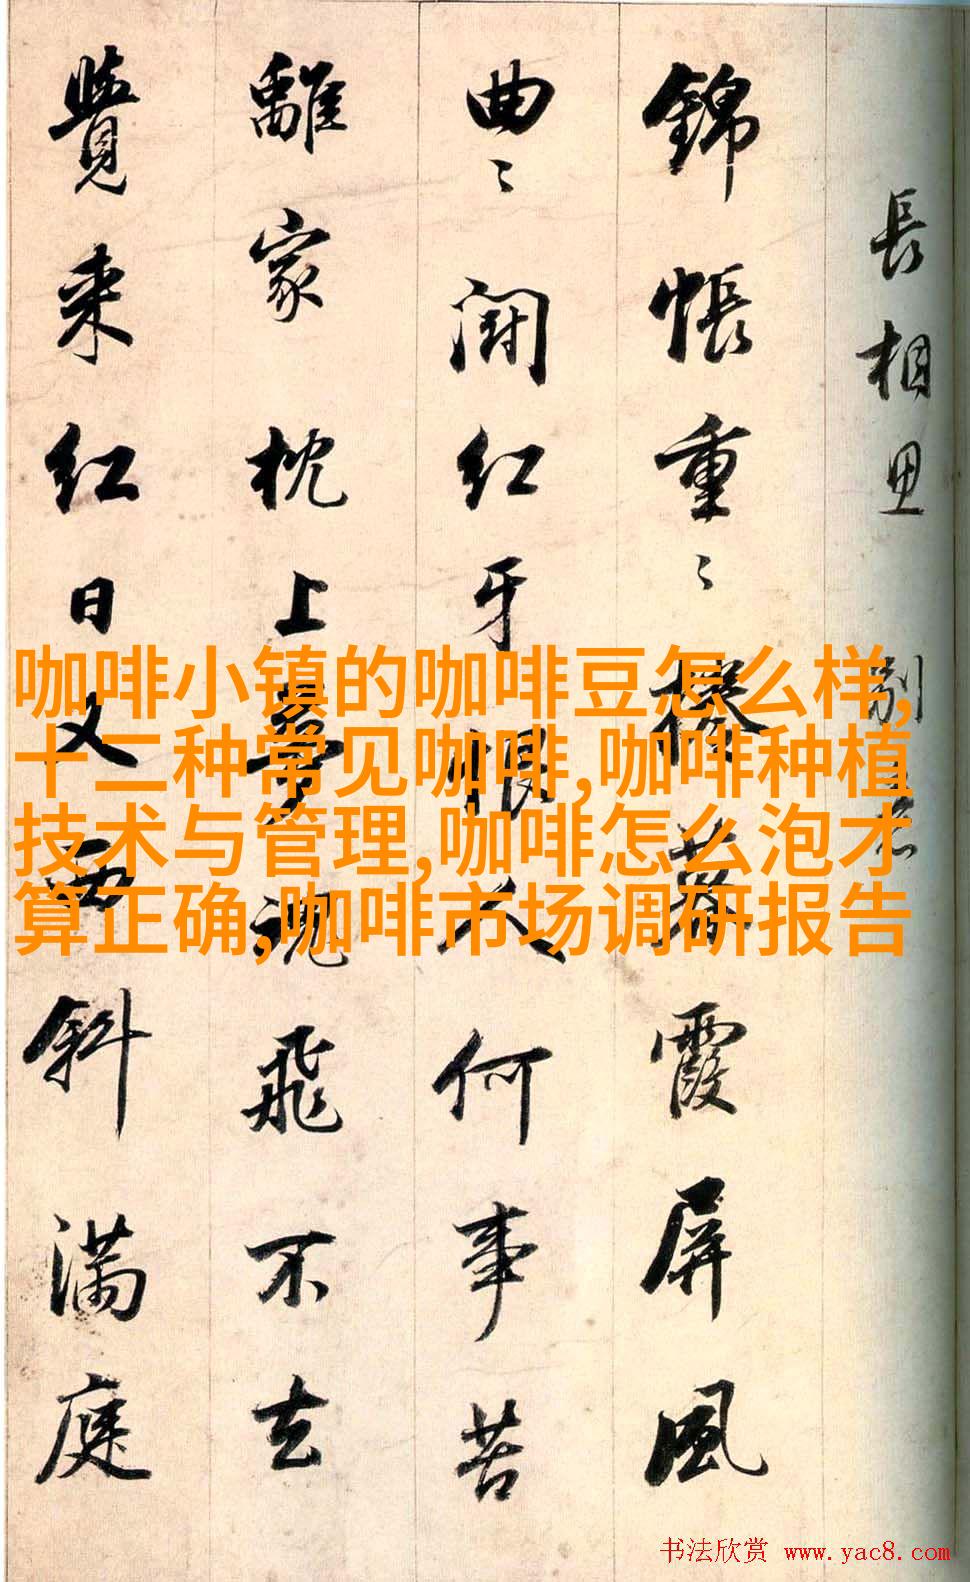 長相思 別意
錦帳重〻捲暮霞屏風
曲〻鬪紅牙恨人何事苦
離家枕上夢魂飛不去
覺來紅日又西斜滿庭
咖啡小镇的咖啡豆怎么样,
十二种常见咖啡,咖啡种植
技术与管理,咖啡怎么泡才
算正确,咖啡市场调研报告
书法欣赏 www.yac8.com